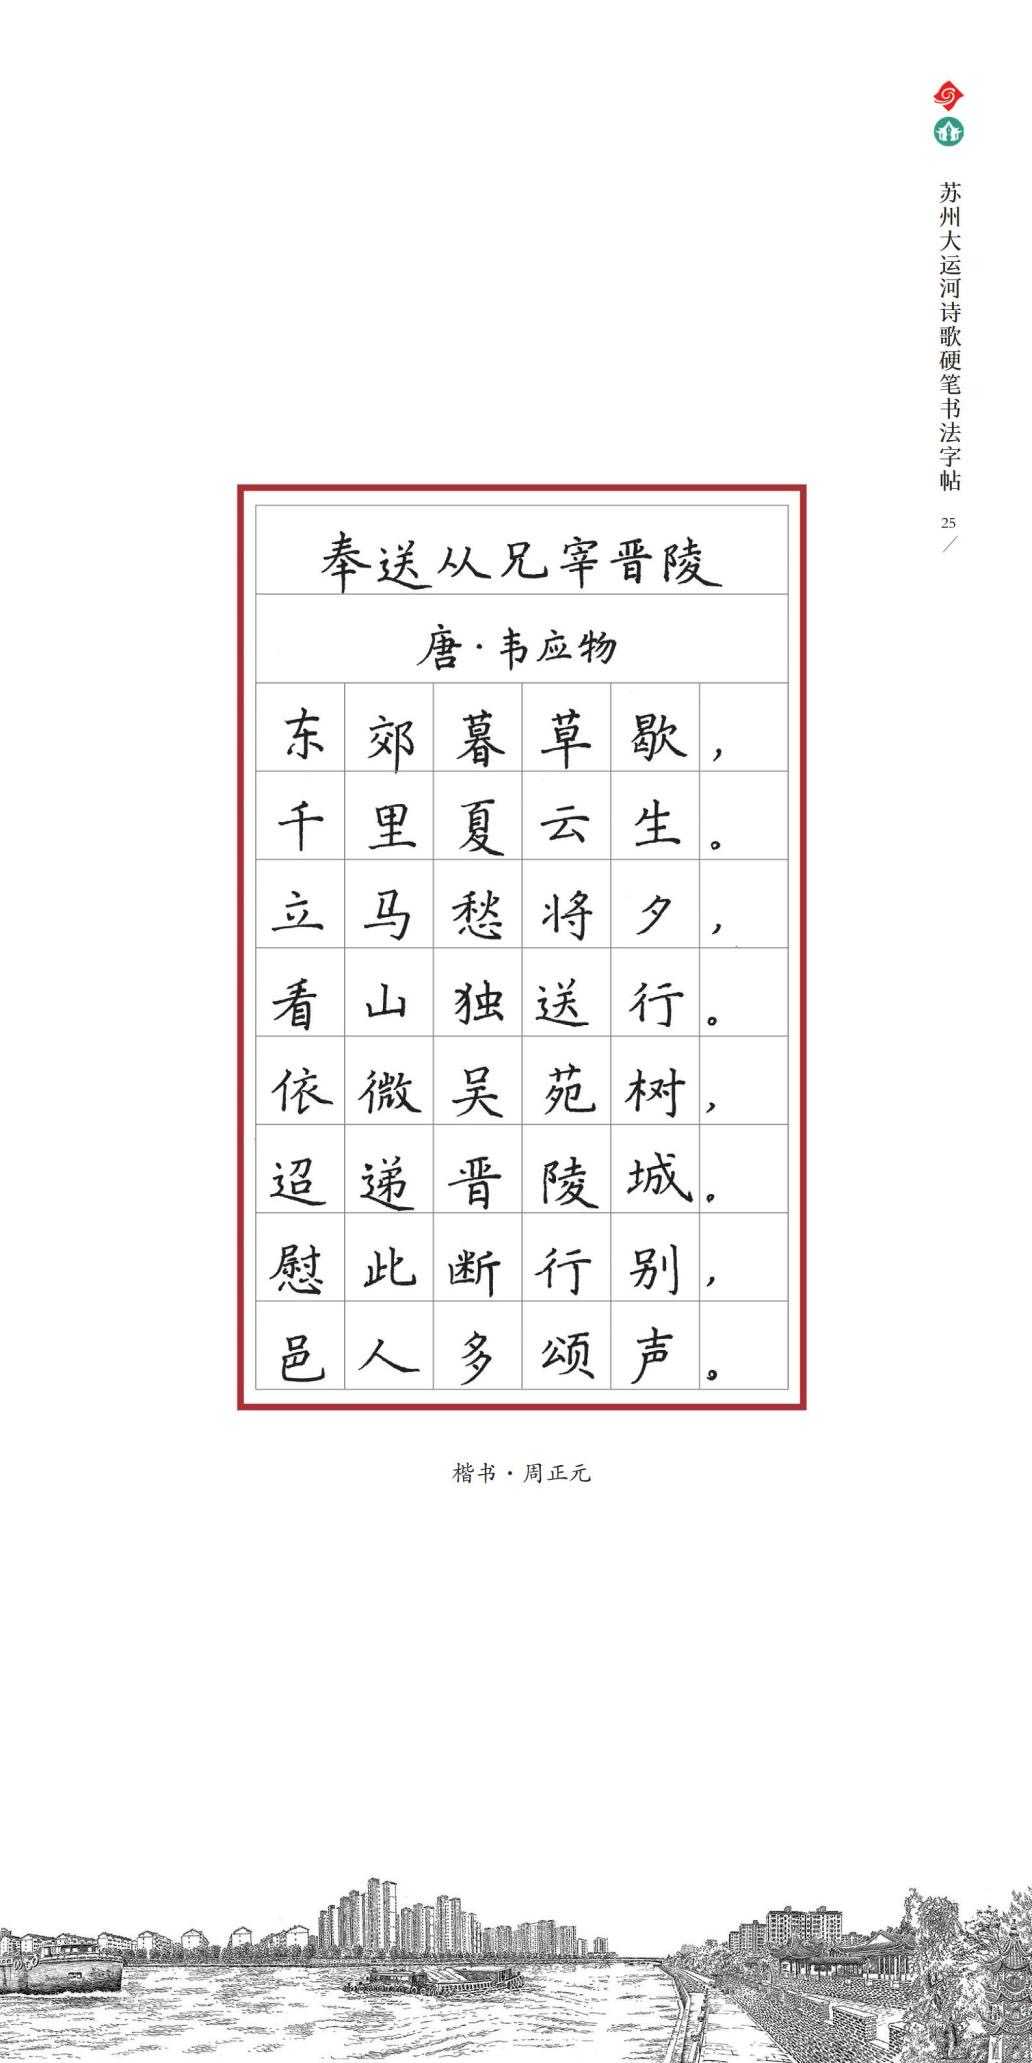 苏州大运河诗歌硬笔书法字帖
25
奉送从兄宰晋陵
唐·韦应物
东郊暮草歇，
千里夏云生。
立马愁将夕，
看山独送行。
依微吴苑树，
迢递晋陵城。
慰此断行别，
邑人多颂声。
楷书·周正元